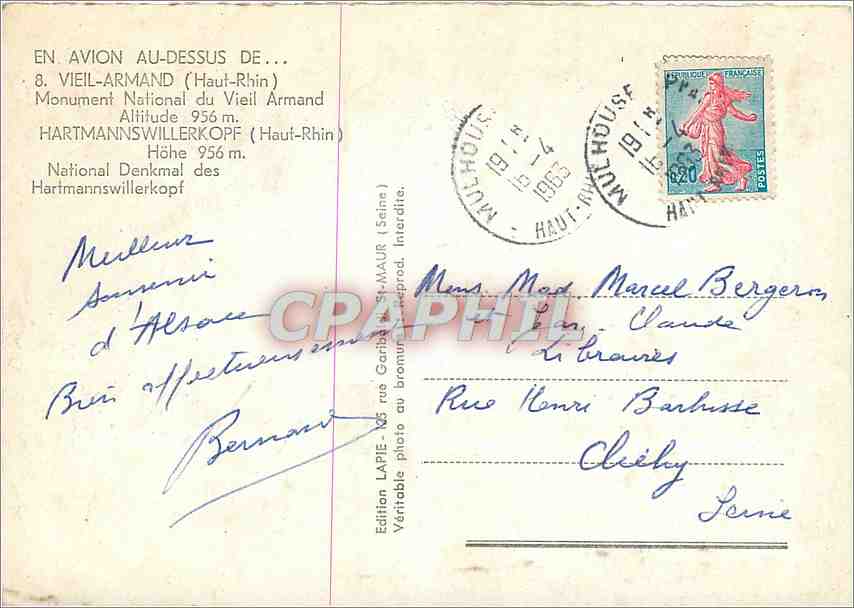 EN AVION AU-DESSUS DE...
8. VIEIL-ARMAND (Haut-Rhin)
Monument National du Vieil Armand
Altitude 956 m.
HARTMANNSWILLERKOPF (Haut-Rhin)
Höhe 956 m.
National Denkmal des
Hartmannswillerkopf
Meilleur
souvenir
d'Alsace
Bien affectueusement
Bernard
Edition LAPIE - 125 rue Garibaldi St-MAUR (Seine)
Véritable photo au bromure - Reprod. Interdite.
CPAPHIL
MULHOUSE
16-4
1963
HAUT-RHIN
MULHOUSE
16-4
1963
HAUT-RHIN
REPUBLIQUE FRANÇAISE
0,20
POSTES
Mons. Mad. Marcel Bergeron
et Jean-Claude
Libraires
Rue Henri Barbusse
Clichy
Seine